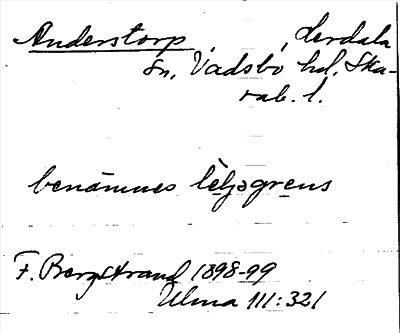 Anderstorp, Lerdala
sn, Vadsbo hd, Ska-
rab. l.
benämnes lèḥəgrens
F. Bergstrand 1898-99
Ulma 111:321